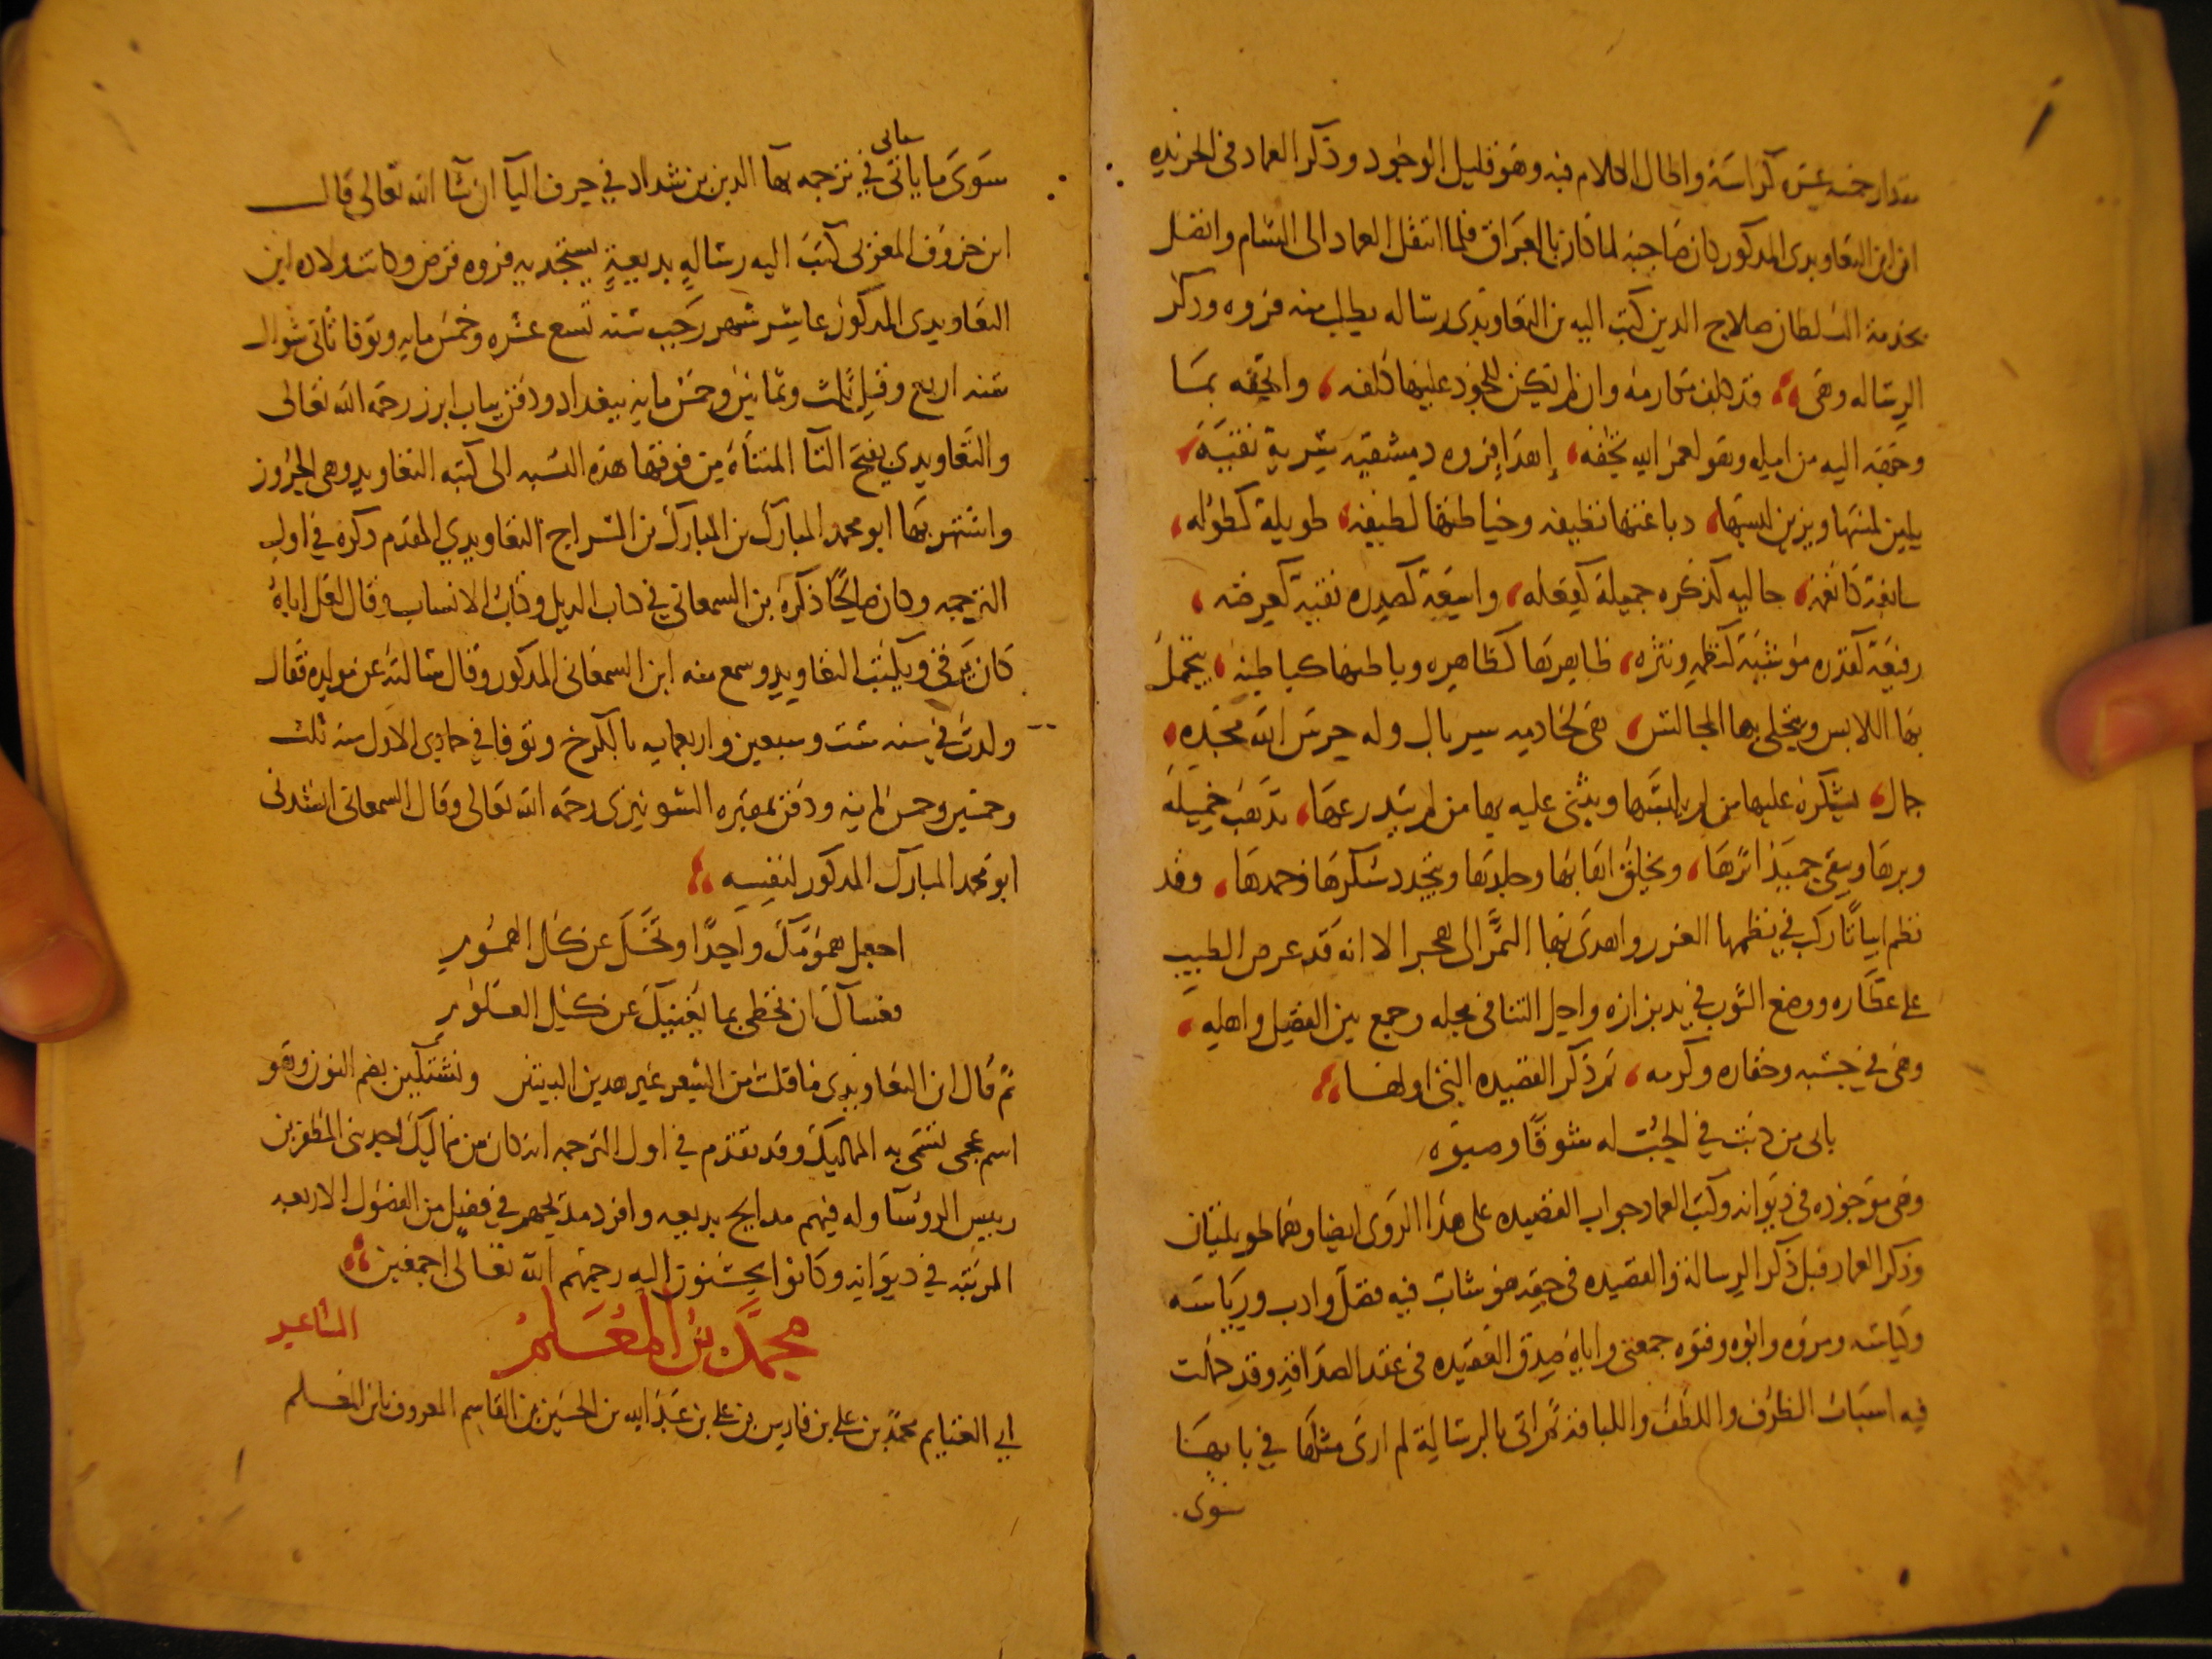 مقدار خمسه عشره كراسه واطال الكلام فيه وهو قليل الوجود وذكر العماد فى الخريده
ان ابن التعاويدى المدكور كان صاحبه لما كان بالعراق فلما انتقل العماد الى الشام واتصل
بخدمة السلطان صلاح الدين كتب اليه بن التعاويدى رساله يطلب منه فروه وذكر
الرساله وهى قد كلف مكارمه وان لم تكن للجود عليها كلفه واتحفه بما
وجهه اليه من امله وهو لعمر الله تحفه إهدا فروه دمشقيه سرية نقيه
يلين لمسها ويزين لبسها دباغتها نظيفه وخياطتها لطيفه طويلة كطوله
سابغة كانعمه حاليه كذكره جميلة كفعله واسعة كصدره نقية كعرضه
رفيعة كقدره موشية كنظمه ونثره ظاهرها كظاهره وباطنها كباطنه يتجمل
بها اللابس ويتحلى بها المجالس هى لخادمه سربال وله حرس الله مجده
جمال يشكره عليها من لم يلبسها ويثنى عليه بها من لم يتدرعها تدهب خميله
وبرها ويبقى حميد اثرها ويخلق اهابها وجلدها ويتجدد شكرها وحمدها وقد
نظم ابياتا ركب في نظمها الغرر واهدى بها التمر الى هجر الا انه قد عرض الطيب
على عطاره ووضع الثوب في يد بزازه واحل الثنا فى محله وجمع بين الفضل واهله
وهى في حسبه وخفاره وكرمه ثم ذكر القصيده التى اولها
بابى من دبت في الحب له شوقا وصبوه
وهى موجوده فى ديوانه وكتب العماد جواب القصيده على هذا الروى ايضا وهما طويلتان
وذكر العماد قبل ذكر الرسالة والقصيده فى حقه هو شاب فيه فضل وادب ورياسه
وكياسه ومروه وابوه وفتوه جمعنى واياه صدق العقيده فى عقد الصداقه وقد كملت
فيه اسباب الظرف واللطف واللباقه ثم اتى بالرسالة لم ارى مثلها في بابها
سوى
سوى ما ياتى في ترجمه بها الدين بن شداد في حرف اليا ان شا الله تعالى قال
ابن خروف المغربى كتب اليه رساله بديعة يستجديه فروه قرض وكانت ولاده ابن
التعاويدى المدكور عاشر شهر رجب سنه تسع عشره وخمس مايه وتوفا ثانى شوال
سنه اربع وقيل ثلث وثمانين وخمس مايه ببغداد ودفن بباب ابرز رحمه الله تعالى
والتعاويدي بفتح التا المثناة من فوقها هذه النسبه الى كتبه التعاويد وهى الحروز
واشتهر بها ابو محمد المبارك بن المبارك بن السراج التعاويدي المقدم ذكره في اول
الترجمه وكان صالحا ذكره بن السمعاني في كتاب الديل وكتاب الانساب وقال لعل اباه
كان يرقى ويكتب التعاويد وسمع منه ابن السمعانى المدكور وقال سالته عن مولده فقال
ولدت في سنه ست وسبعين واربعمايه بالكرخ وتوفا في جمادى الاول سنه ثلث
وخمسين وخمس مايه ودفن بمقبره الشونيزى رحمه الله تعالى وقال السمعانى انشدنى
ابو محمد المبارك المدكور لنفسه
اجعل همومك واحدا وتخل عن كل الهموم
فعساك ان تحظى بما يغنيك عن كل العلوم
ثم قال ابن التعاويدى ما قلت من الشعر غير هدين البيتين ونشتكين بضم النون وهو
اسم عجمى تتسمى به المماليك وقد تقدم في اول الترجمه انه كان من مماليك احد بنى المظفر بن
رييس الروسا وله فيهم مدايح بديعه وافرد مديحهم في فصل من الفصول الاربعه
المرتبه في ديوانه وكانوا يحسنون اليه رحمهم الله تعالى اجمعين
محمد بن المعلم الشاعر
ابي الغنايم محمد بن علي بن فارس بن علي بن عبد الله بن الحسين بن القاسم المعروف بابن المعلم